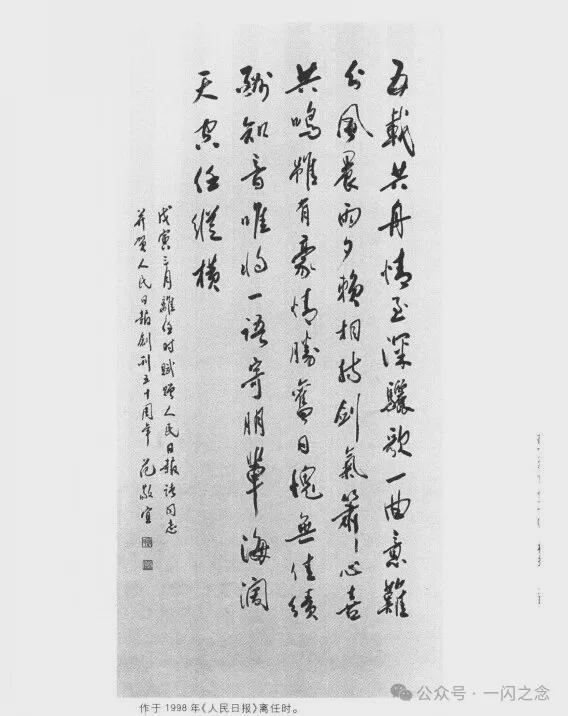 五載共舟情至深驪歌一曲意難
分風晨雨夕賴相劍氣簫心喜
共鳴雖有豪情勝舊日愧無佳績
酬知音唯将一語寄朋輩海闊
天空任縱橫
戊寅三月離任时赋赠人民日報诸同志
并贺人民日報創刊五十周年 范敬宜
作于1998年《人民日报》离任时。
公众号·一闪之念